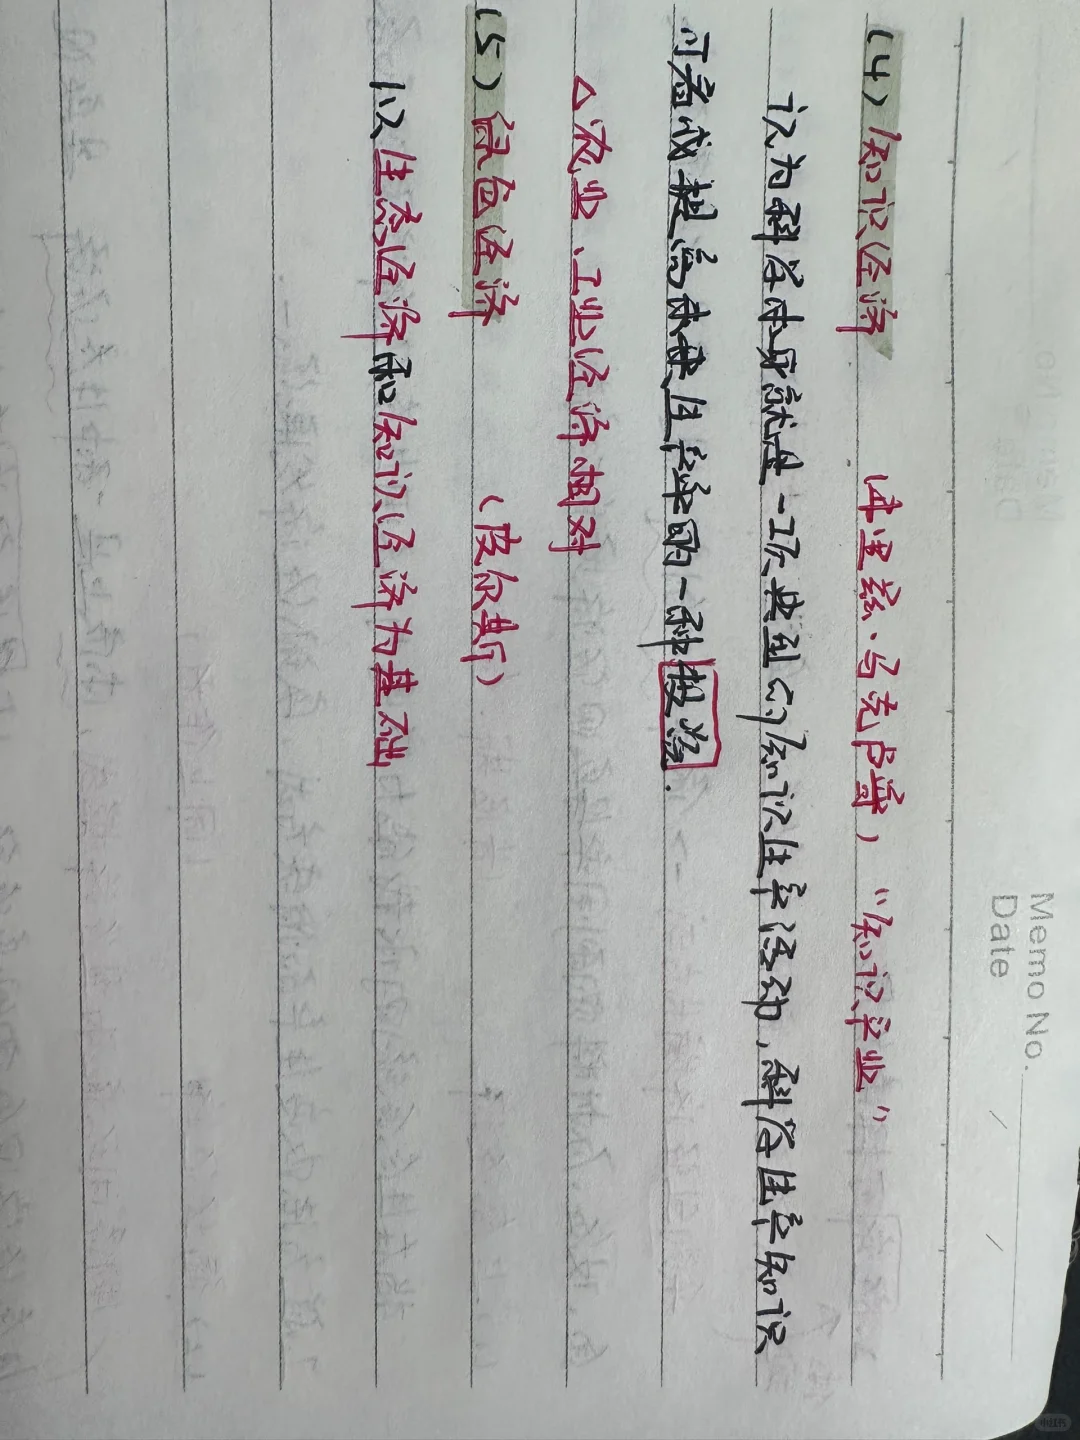 Memo No.
Date / /
(4) 知识经济 (弗里兹·马克卢普) “知识产业”
认为科学本身就是一项典型的知识生产活动,科学生产知识
可看成提高未来生产率的一种投资.
△农业、工业经济相对
(5) 绿色经济 (皮尔斯)
以生态经济和知识经济为基础
小红书